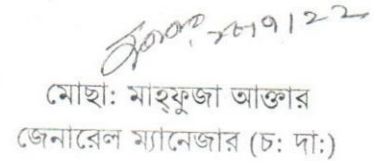 মোছা: মাহ্ফুজা আক্তার
জেনারেল ম্যানেজার (চ: দা:)